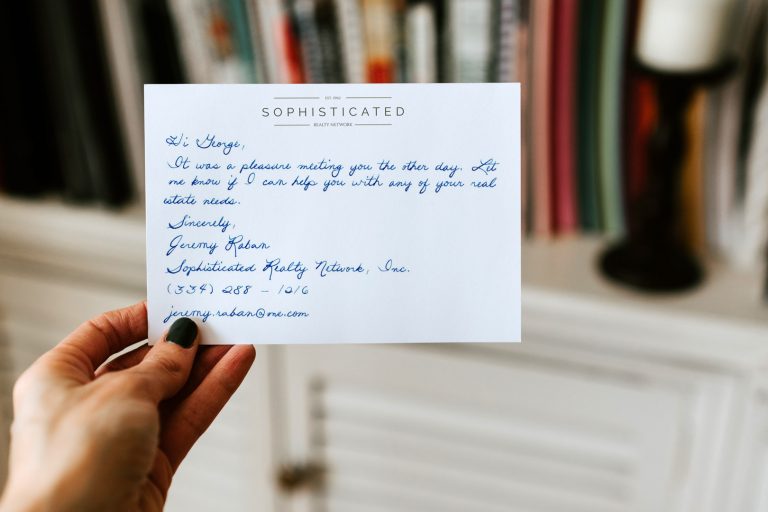 EST. 1992
SOPHISTICATED
REALTY NETWORK
Hi George,
It was a pleasure meeting you the other day. Let
me know if I can help you with any of your real
estate needs.
Sincerely,
Jeremy Raban
Sophisticated Realty Network, Inc.
(334) 288 - 1216
jeremy.raban@me.com